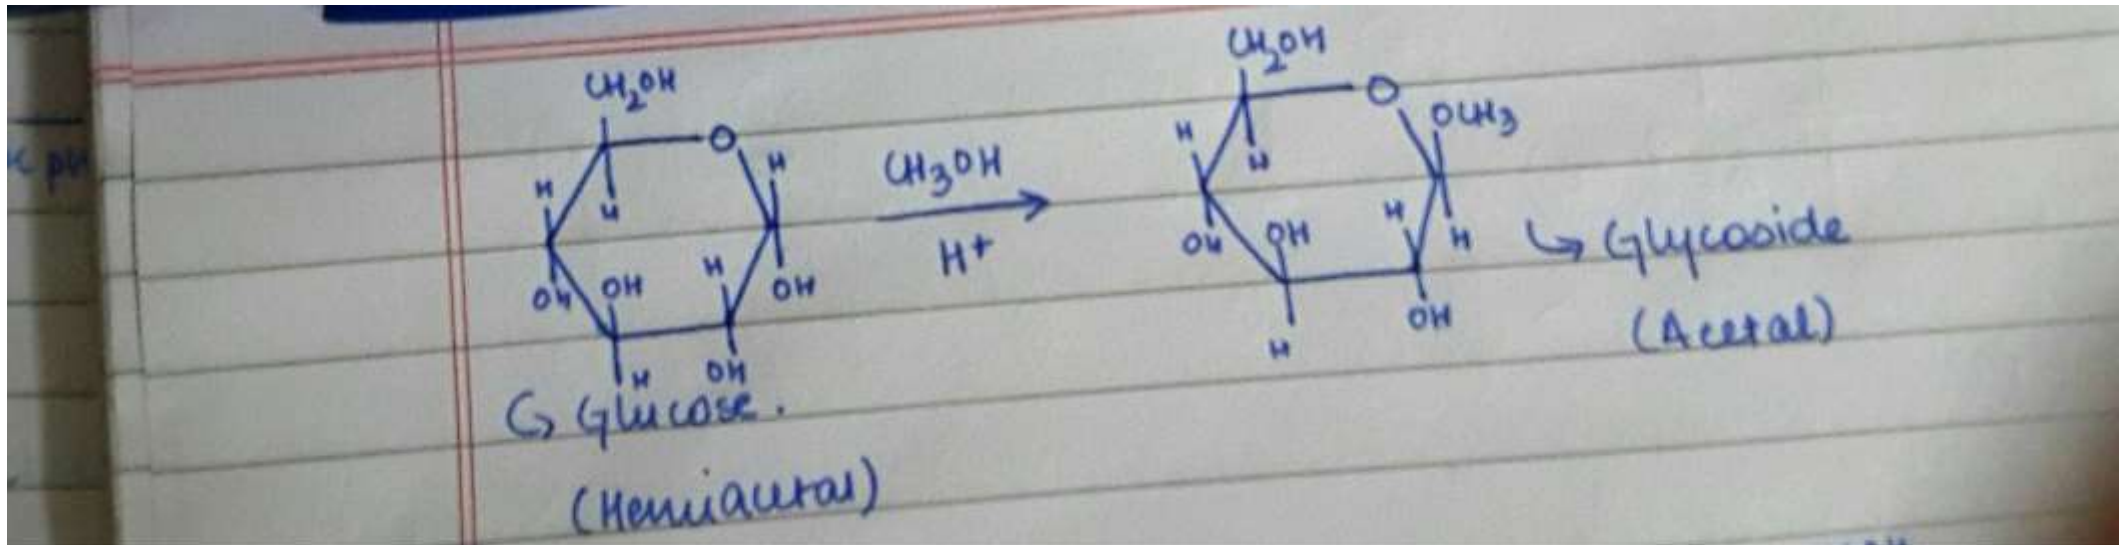 CH₂OH
O
H
H
H
OH
OH
H
OH
H
OH
Glucose.
(Hemiacetal)
CH₃OH
H+
CH₂OH
O
OCH₃
H
H
OH
OH
H
H
OH
H
Glycoside
(Acetal)